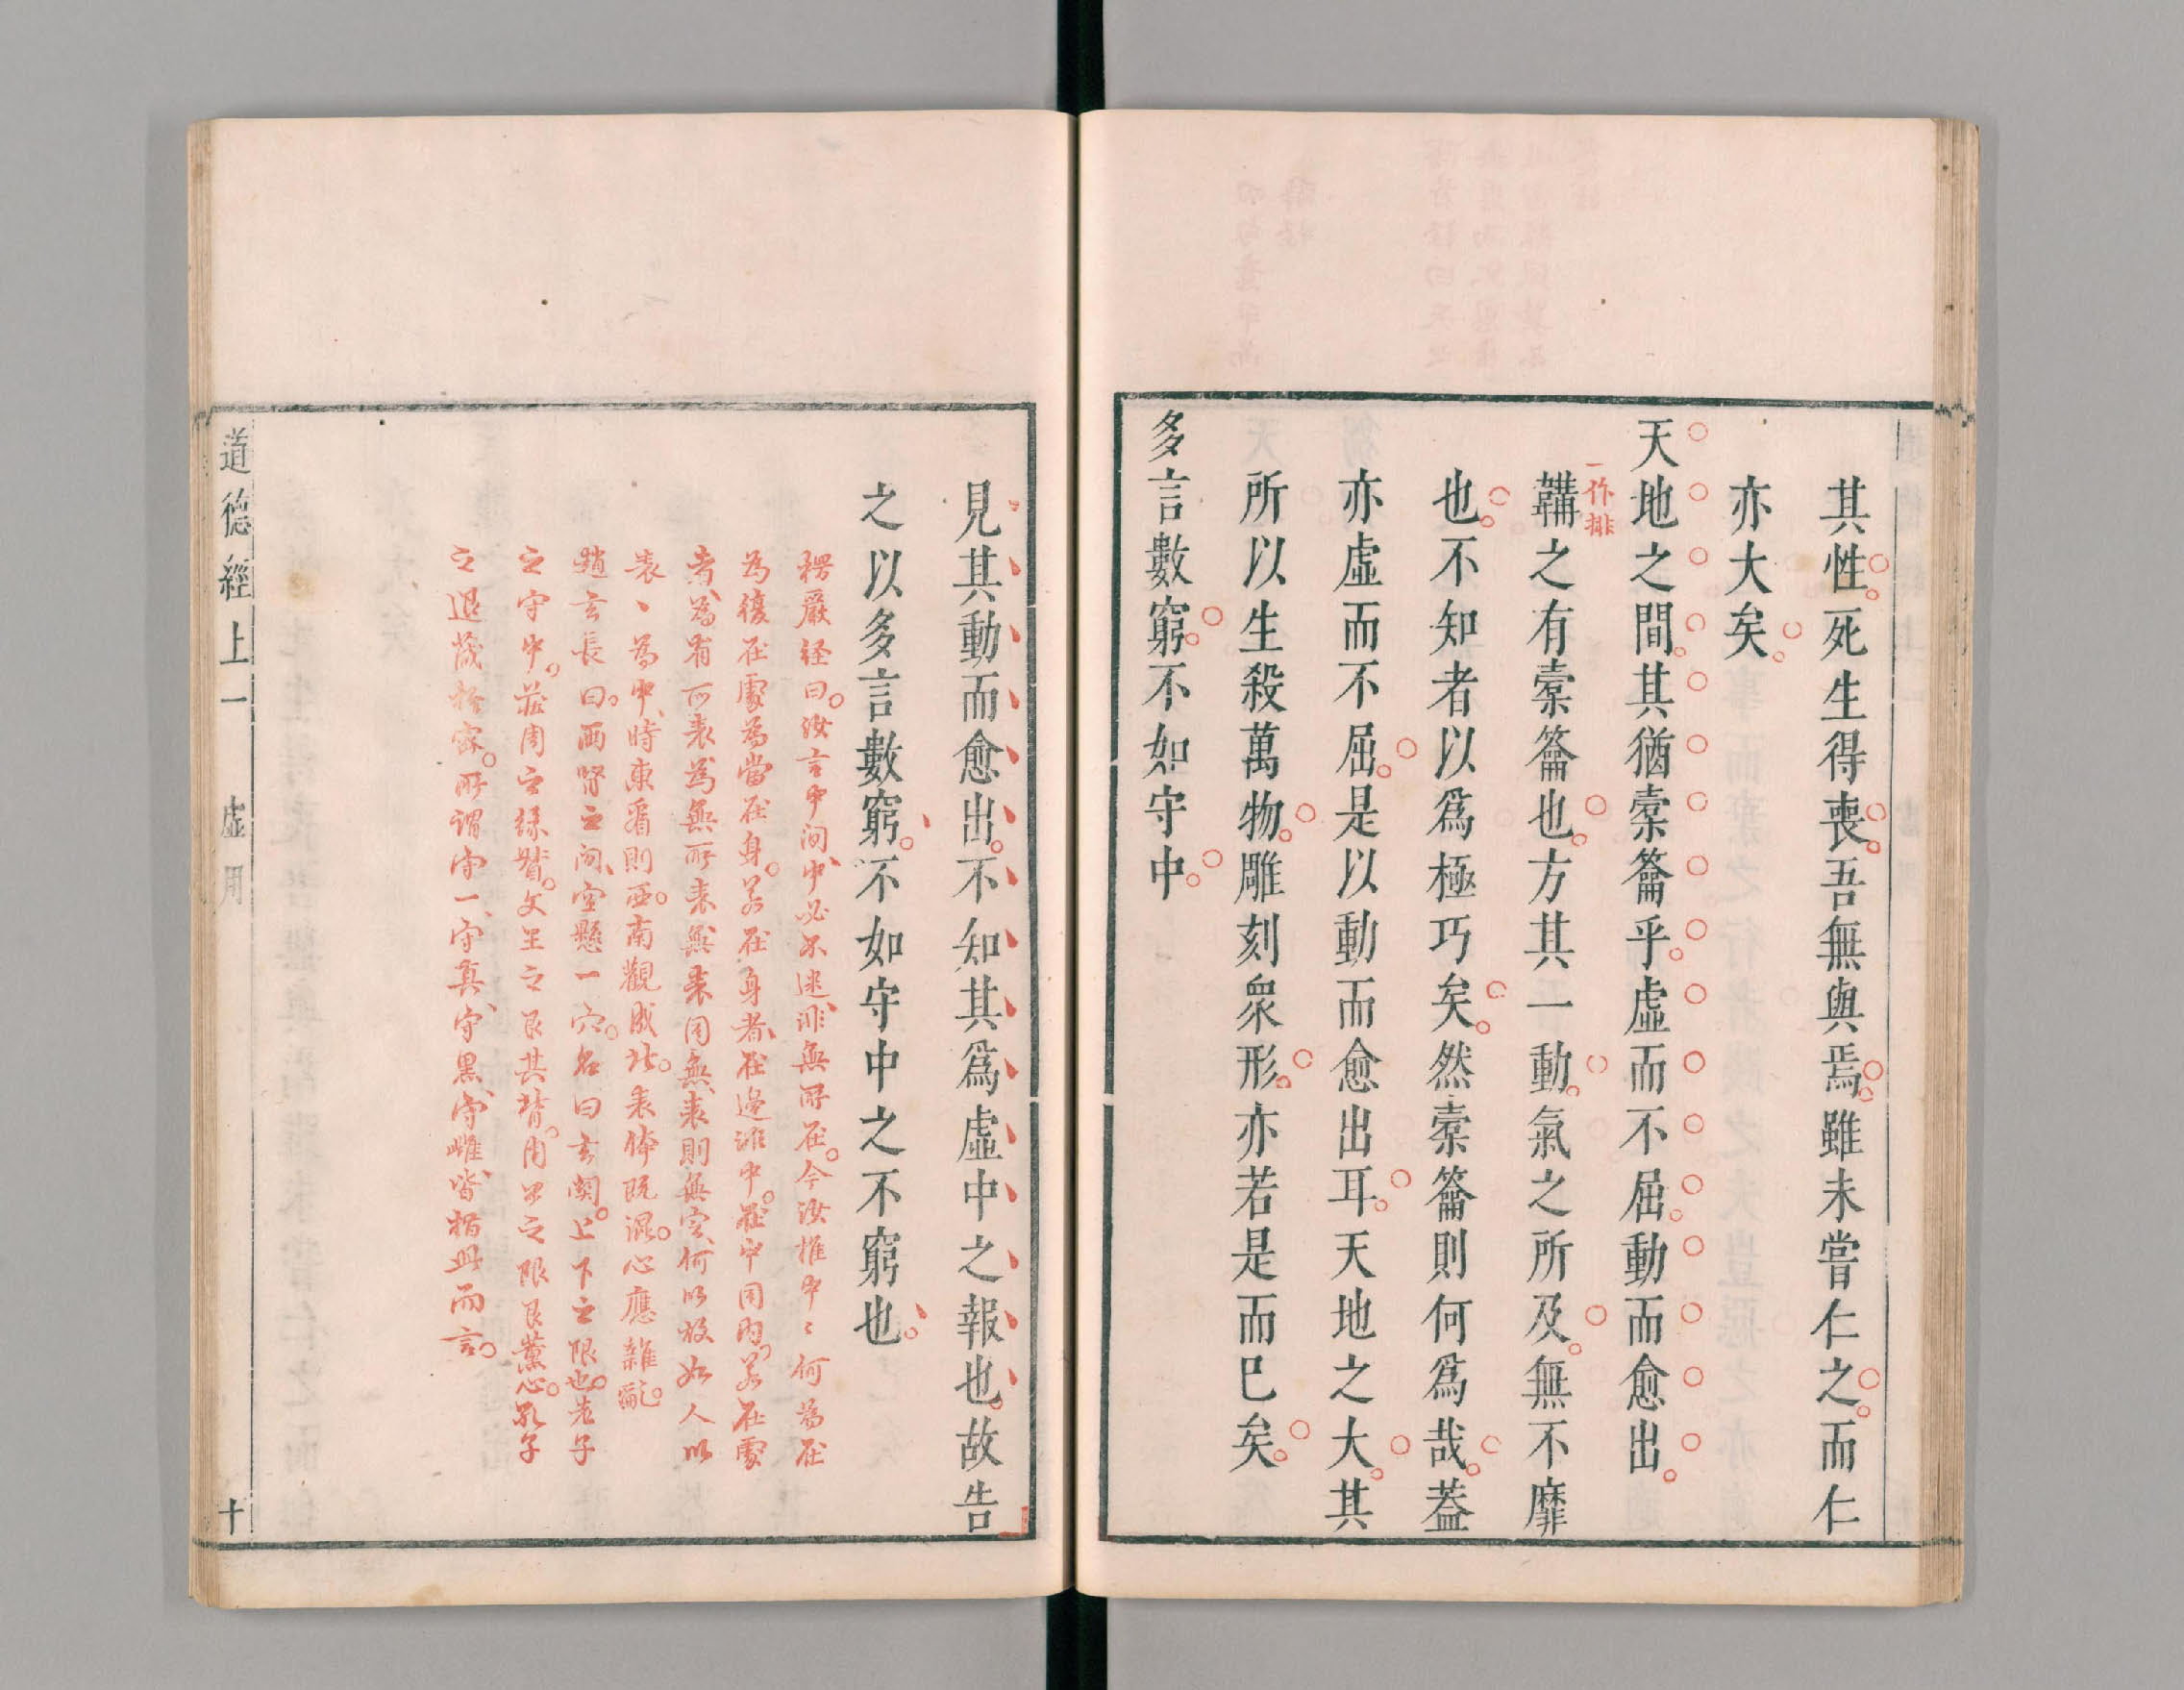 其性死生得喪吾無與焉雖未嘗仁之而仁
亦大矣
天地之間其猶橐籥乎虛而不屈動而愈出
一作排
鞴之有橐籥也方其一動氣之所及無不靡
也不知者以爲極巧矣然橐籥則何爲哉葢
亦虛而不屈是以動而愈出耳天地之大其
所以生殺萬物雕刻衆形亦若是而已矣
多言數窮不如守中
見其動而愈出不知其爲虛中之報也故告
之以多言數窮不如守中之不窮也
楞嚴経曰汝言中间中必不迷非無所在今汝推中〻何為在
為復在處為當在身若在身者在邊非中在中同內若在處
者為有所表為無所表無表同無表則無定何以故如人以
表〻為中時東看則西南觀成北表体既混心應雜亂
趙玄長曰兩腎之间空懸一穴名曰玄關上下之限也老子
之守中莊周之緣督文王之艮其背周公之限艮薰心孔子
之退藏於密所謂守一守真守黑守雌皆指此而言
道德經上一　虛用　十